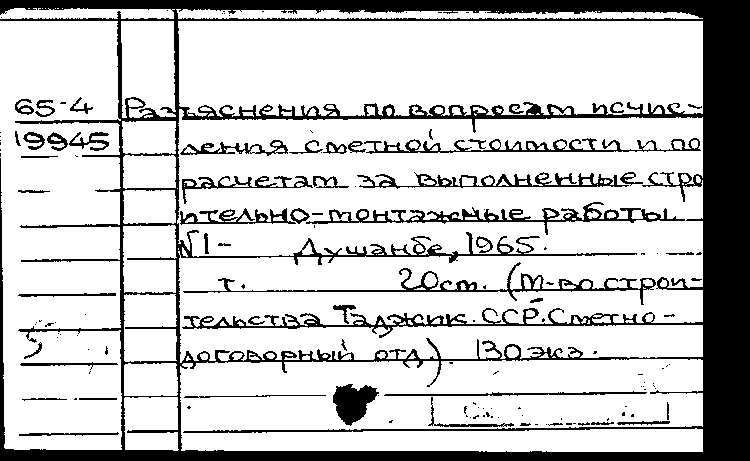 65-4 Разъяснения по вопросам исчис-
19945 ления сметной стоимости и по
расчетам за выполненные стро
ительно-монтажные работы.
№1- Душанбе, 1965.
т. 20cm. (М-во строи-
тельства Таджик. ССР. Сметно-
договорный отд.). 130 экз.